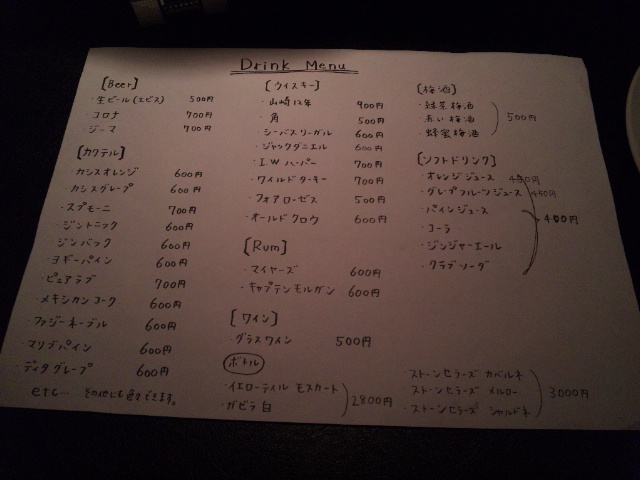 Drink Menu
[Beer]
・生ビール(エビス) 500円
・コロナ 700円
・ジーマ 700円
[カクテル]
・カシスオレンジ 600円
・カシスグレープ 600円
・スプモーニ 700円
・ジントニック 600円
・ジンバック 600円
・ヨギーパイン 600円
・ピュアラブ 700円
・メキシカンコーク 600円
・ファジーネーブル 600円
・マリブパイン 600円
・ディタグレープ 600円
etc… その他にも色々できます。
[ウイスキー]
・山崎12年 900円
・角 500円
・シーバスリーガル 600円
・ジャックダニエル 600円
・I.Wハーパー 700円
・ワイルドターキー 700円
・フォアローゼス 500円
・オールドクロウ 600円
[Rum]
・マイヤーズ 600円
・キャプテンモルガン 600円
[ワイン]
・グラスワイン 500円
ボトル
・イエローテイル モスカート
・ガビラ 白
2800円
・ストーンセラーズ カベルネ
・ストーンセラーズ メルロー
・ストーンセラーズ シャルドネ
3000円
[梅酒]
・緑茶梅酒
・赤い梅酒
・蜂蜜梅酒
500円
[ソフトドリンク]
・オレンジジュース 450円
・グレプフルーツジュース 450円
・パインジュース
・コーラ
・ジンジャーエール
・クラブソーダ
400円